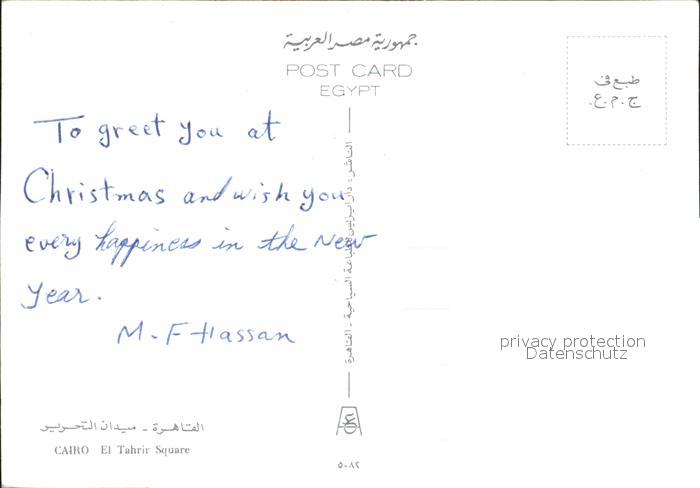 جمهورية مصر العربية
POST CARD
EGYPT
طبع فى
ج.م.ع.
To greet you at
Christmas and wish you
every happiness in the New
Year.
M.F Hassan
القاهرة - ميدان التحرير
CAIRO El Tahrir Square
الناشر: دار ايزيس للطباعة السياحية - القاهرة
٥٠٨٢
privacy protection
Datenschutz